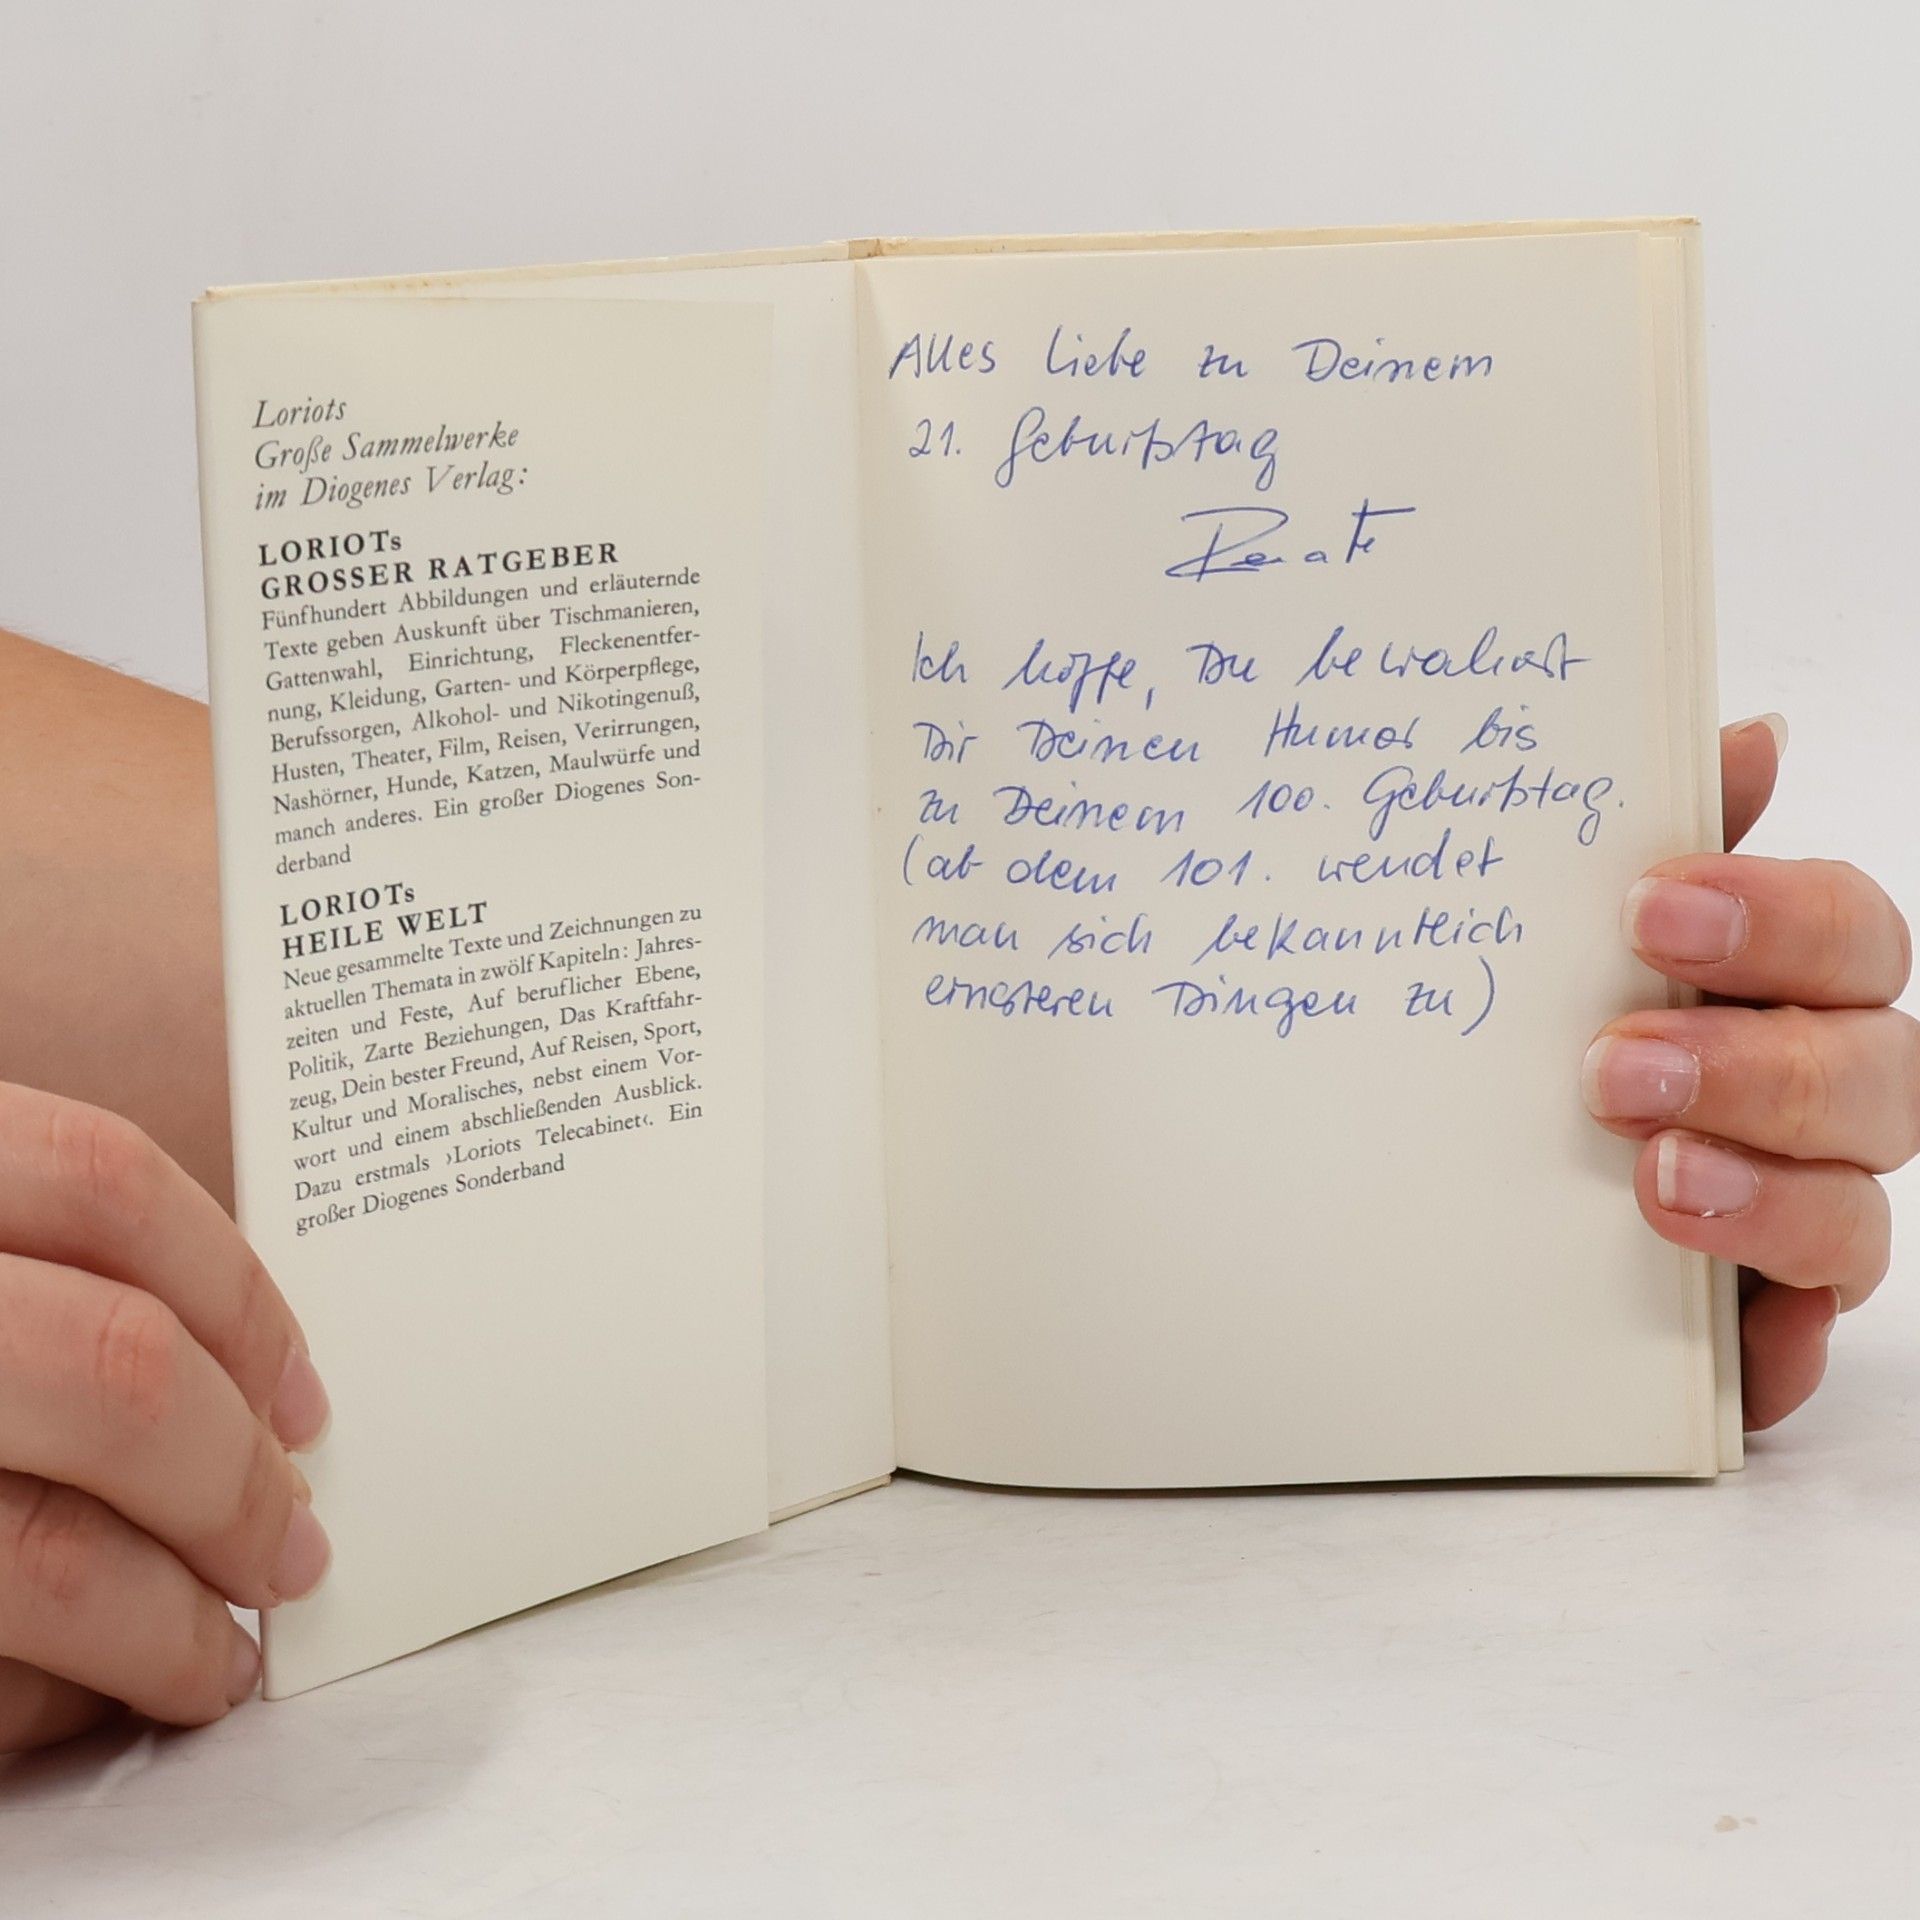 Loriots
Große Sammelwerke
im Diogenes Verlag:
LORIOTs
GROSSER RATGEBER
Fünfhundert Abbildungen und erläuternde
Texte geben Auskunft über Tischmanieren,
Gattenwahl, Einrichtung, Fleckenentfer-
nung, Kleidung, Garten- und Körperpflege,
Berufssorgen, Alkohol- und Nikotingenuß,
Husten, Theater, Film, Reisen, Verirrungen,
Nashörner, Hunde, Katzen, Maulwürfe und
manch anderes. Ein großer Diogenes Son-
derband
LORIOTs
HEILE WELT
Neue gesammelte Texte und Zeichnungen zu
aktuellen Themata in zwölf Kapiteln: Jahres-
zeiten und Feste, Auf beruflicher Ebene,
Politik, Zarte Beziehungen, Das Kraftfahr-
zeug, Dein bester Freund, Auf Reisen, Sport,
Kultur und Moralisches, nebst einem Vor-
wort und einem abschließenden Ausblick.
Dazu erstmals ›Loriots Telecabinet‹. Ein
großer Diogenes Sonderband
Alles Liebe zu Deinem
21. Geburtstag
Renate
Ich hoffe, Du bewahrst
Dir Deinen Humor bis
zu Deinem 100. Geburtstag.
(ab dem 101. wendet
man sich bekanntlich
ernsteren Dingen zu)